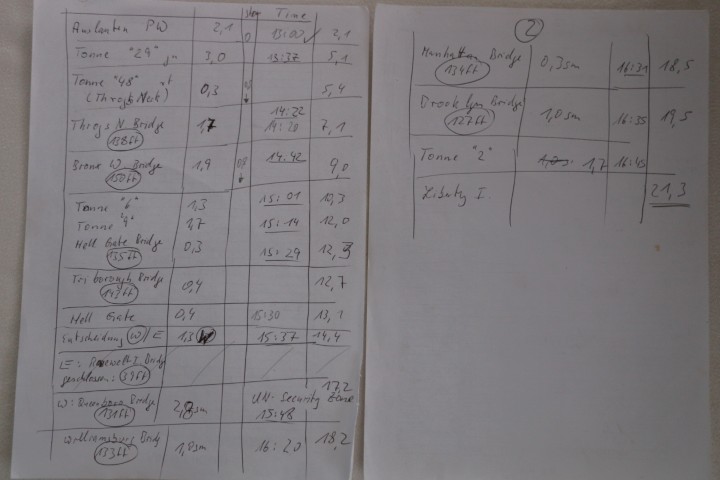 Strom Time
Auslaufen PW 2,1 0 13:00 2,1
Tonne "29" 3,0 13:37 5,1
Tonne "48"
(Throgs Neck) 0,3 5,4
14:22
Throgs N Bridge 1,7 7,1
138ft
Bronx W. Bridge 1,9 14:42 9,0
150ft
Tonne "6" 1,3 15:01 10,3
Tonne 1,7 15:14 12,0
Hell Gate Bridge 0,3 15:29
135ft
Triborough Bridge 0,4 12,7
143ft
Hell Gate 0,4 15:30 13,1
Entscheidung W/E 1,3 15:37 14,4
E: Bridg
geschlossen: 39ft
17,2
W: Bridge sm UN-Security Zone
131ft 15:48
Williamsburg Bridg 1,0sm 16:20 18,2
133ft
2
Manhattan Bridge 0,3sm 16:31 18,5
134ft
Brooklyn Bridge 1,0sm 16:35 19,5
127ft
Tonne "2" 1,7 16:45
Liberty I. 21,3